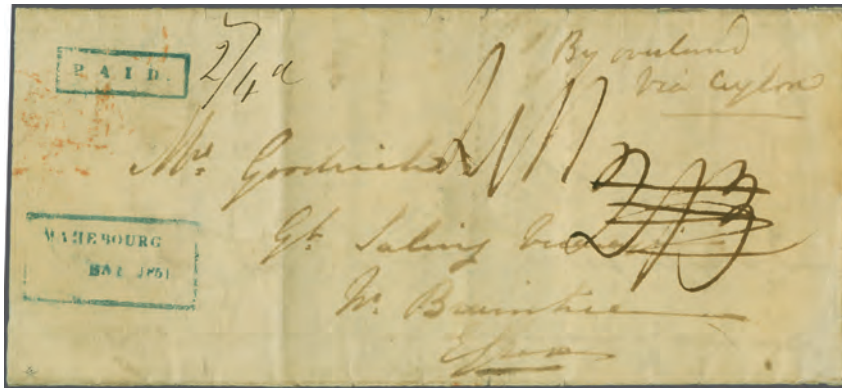 PAID.
2/4d
By overland
Via Ceylon
Mrs Goodrich
Gt. Saling
Nr. Braintree
Essex
MAHEBOURG
1851